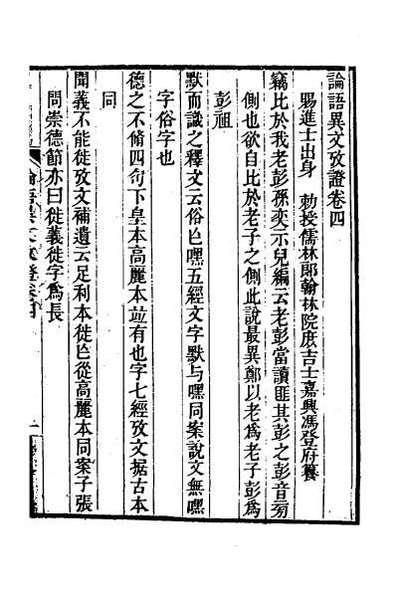 論語異文攷證卷四
賜進士出身　勅授儒林郎翰林院庶吉士嘉興馮登府纂
竊比於我老彭孫奕示兒編云老彭當讀匪其彭之彭音旁
側也欲自比於老子之側此說最異鄭以老爲老子彭爲
彭祖
默而識之釋文云俗作嘿五經文字默与嘿同案說文無嘿
字俗字也
德之不脩四句下皇本高麗本竝有也字七經攷文据古本
同
聞義不能徙攷文補遺云足利本徙作從高麗本同案子張
問崇德節亦曰徙義徙字爲長
論語異文攷證卷四
一